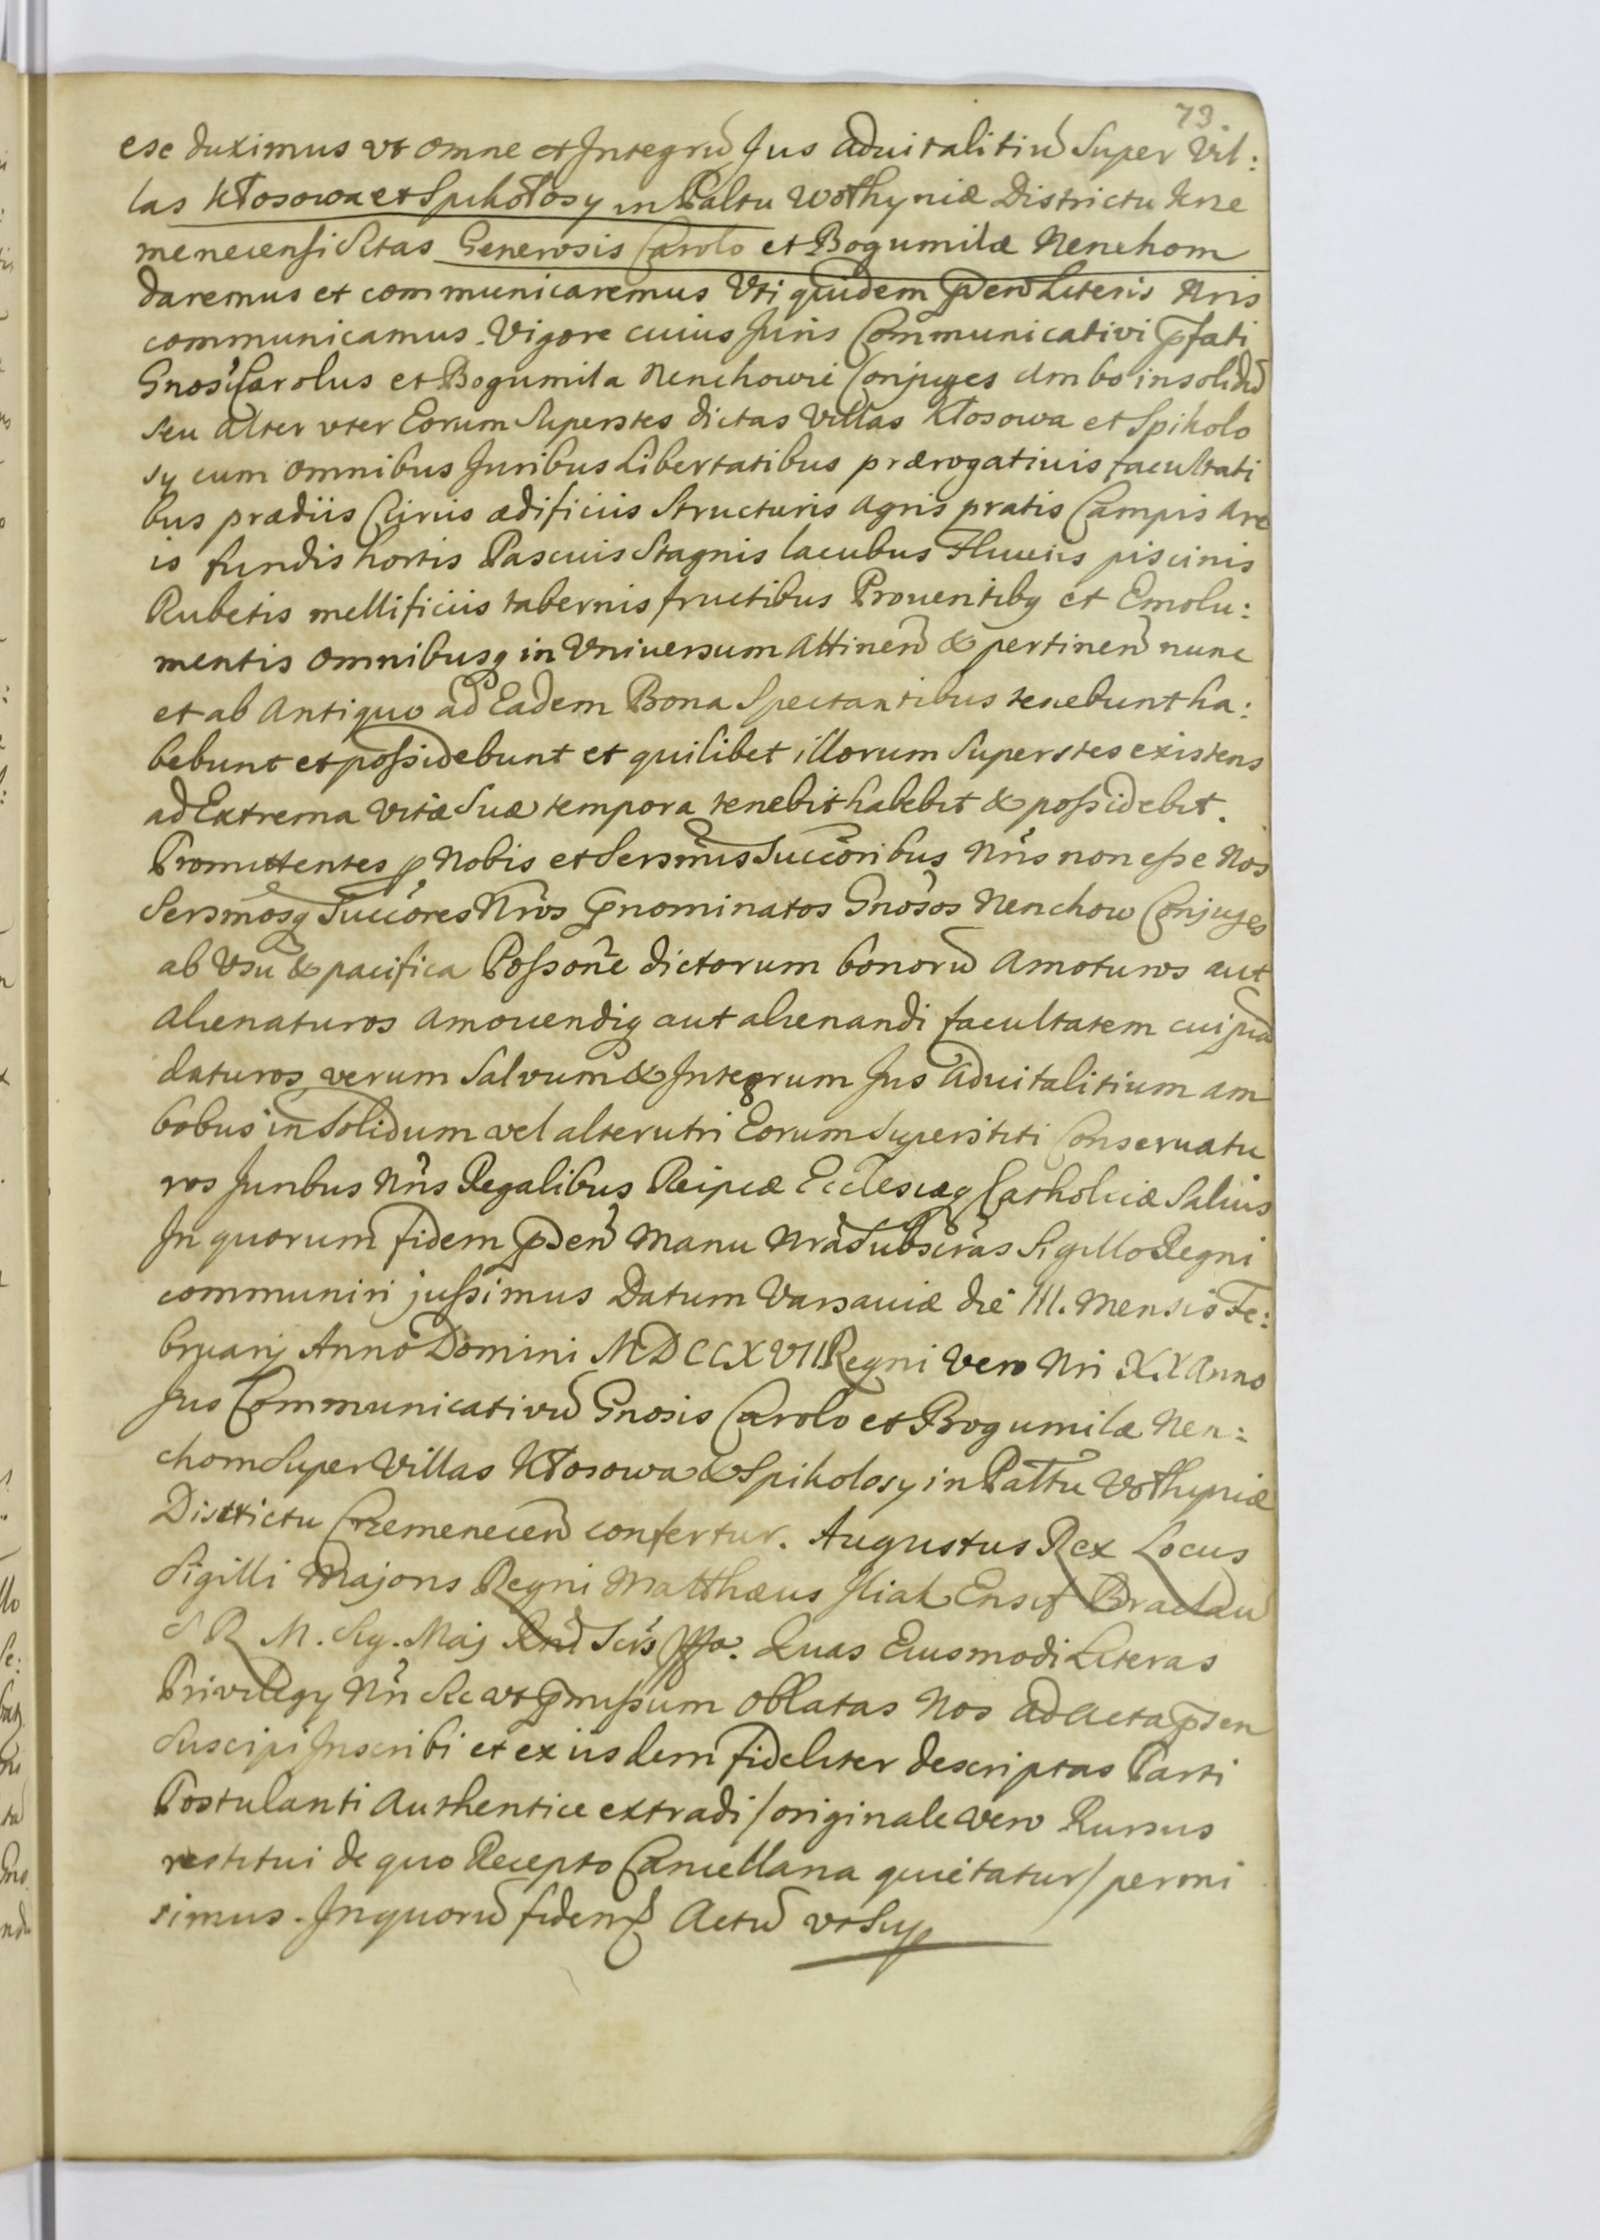 73.
ese duximus vt omne et Integrũ Jus aduitalitiũ Super Vil:
las Kłosowa et Spikołosy in Paltu Wołhyniæ Districtu Krze
menecensi Sitas Generosis Carolo et Bogumilæ Nenchom
daremus et communicaremus Vti quidem p̃den Literis Nris
communicamus. Vigore cuius Juris Communicativi p̃fati
Gnosi Carolus et Bogumila Nenchowie Conjuges Ambo insolidũ
seu alter vter Eorum Superstes dictas Villas Kłosowa et Spikolo
sy cum omnibus Juribus Libertatibus prærogatiuis facultati
bus prædiis ædificiis Structuris agris pratis Campis Are
is fundis hortis Pascuis Stagnis lacubus Fluuiis piscinis
Rubetis mellificiis tabernis fructibus Prouentibq et Emolu:
mentis omnibusq in Vniuersum Attinen̄ & pertinen̄ nunc
et ab Antiquo ad Eadem Bona Spectantibus tenebunt ha:
bebunt et possidebunt et quilibet illorum Superstes existens
ad Extrema vitæ Suæ tempora tenebit habebit & possidebit.
Promittentes p Nobis et Sersmis Succoribus Nris non esse Nos
Sersmosq Succores Nros p̃nominatos Gnosos Nenchow Conjuges
ab Vsu & pacifica Possone dictorum bonorũ Amoturos aut
alienaturos amouendiq aut alienandi facultatem cuipiã
daturos, verum Salvum & Integrum Jus aduitalitium am
bobus in Solidum vel alterutri Eorum Superstiti Conseruatu
ros Juribus Nris Regalibus Reipcæ Ecclesiæq Catholicæ Saluis
In quorum fidem p̃den̄ Manu Nra Subscras Sigillo Regni
communiri jussimus Datum Varsauiæ die III. Mensis Fe:
bruarij Anno Domini MDCCXVII Regni vero Nri XX Anno
Jus Communicativũ Gnosis Carolo et Bogumilæ Nen:
chom Super Villas Kłosowa & Spikolosy in Pałtu Vołhyniæ
Districtu Crzemenecen̄ confertur. Augustus Rex Locus
Sigilli Majoris Regni Matthæus Iliak Ensif Braclaw
S R M. Sig. Maj Rni Scrs mppa. Quas Eiusmodi Literas
Privilegij Nri Sic vt p̃missum oblatas Nos ad Acta p̃den
Suscipi Inscribi et ex iisdem fideliter descriptas Parti
Postulanti Authentice extradi / originale vero Rursus
restitui de quo Recepto Cancellaria quietatur / permi
simus. In quorũ fidem Actũ vt Sup